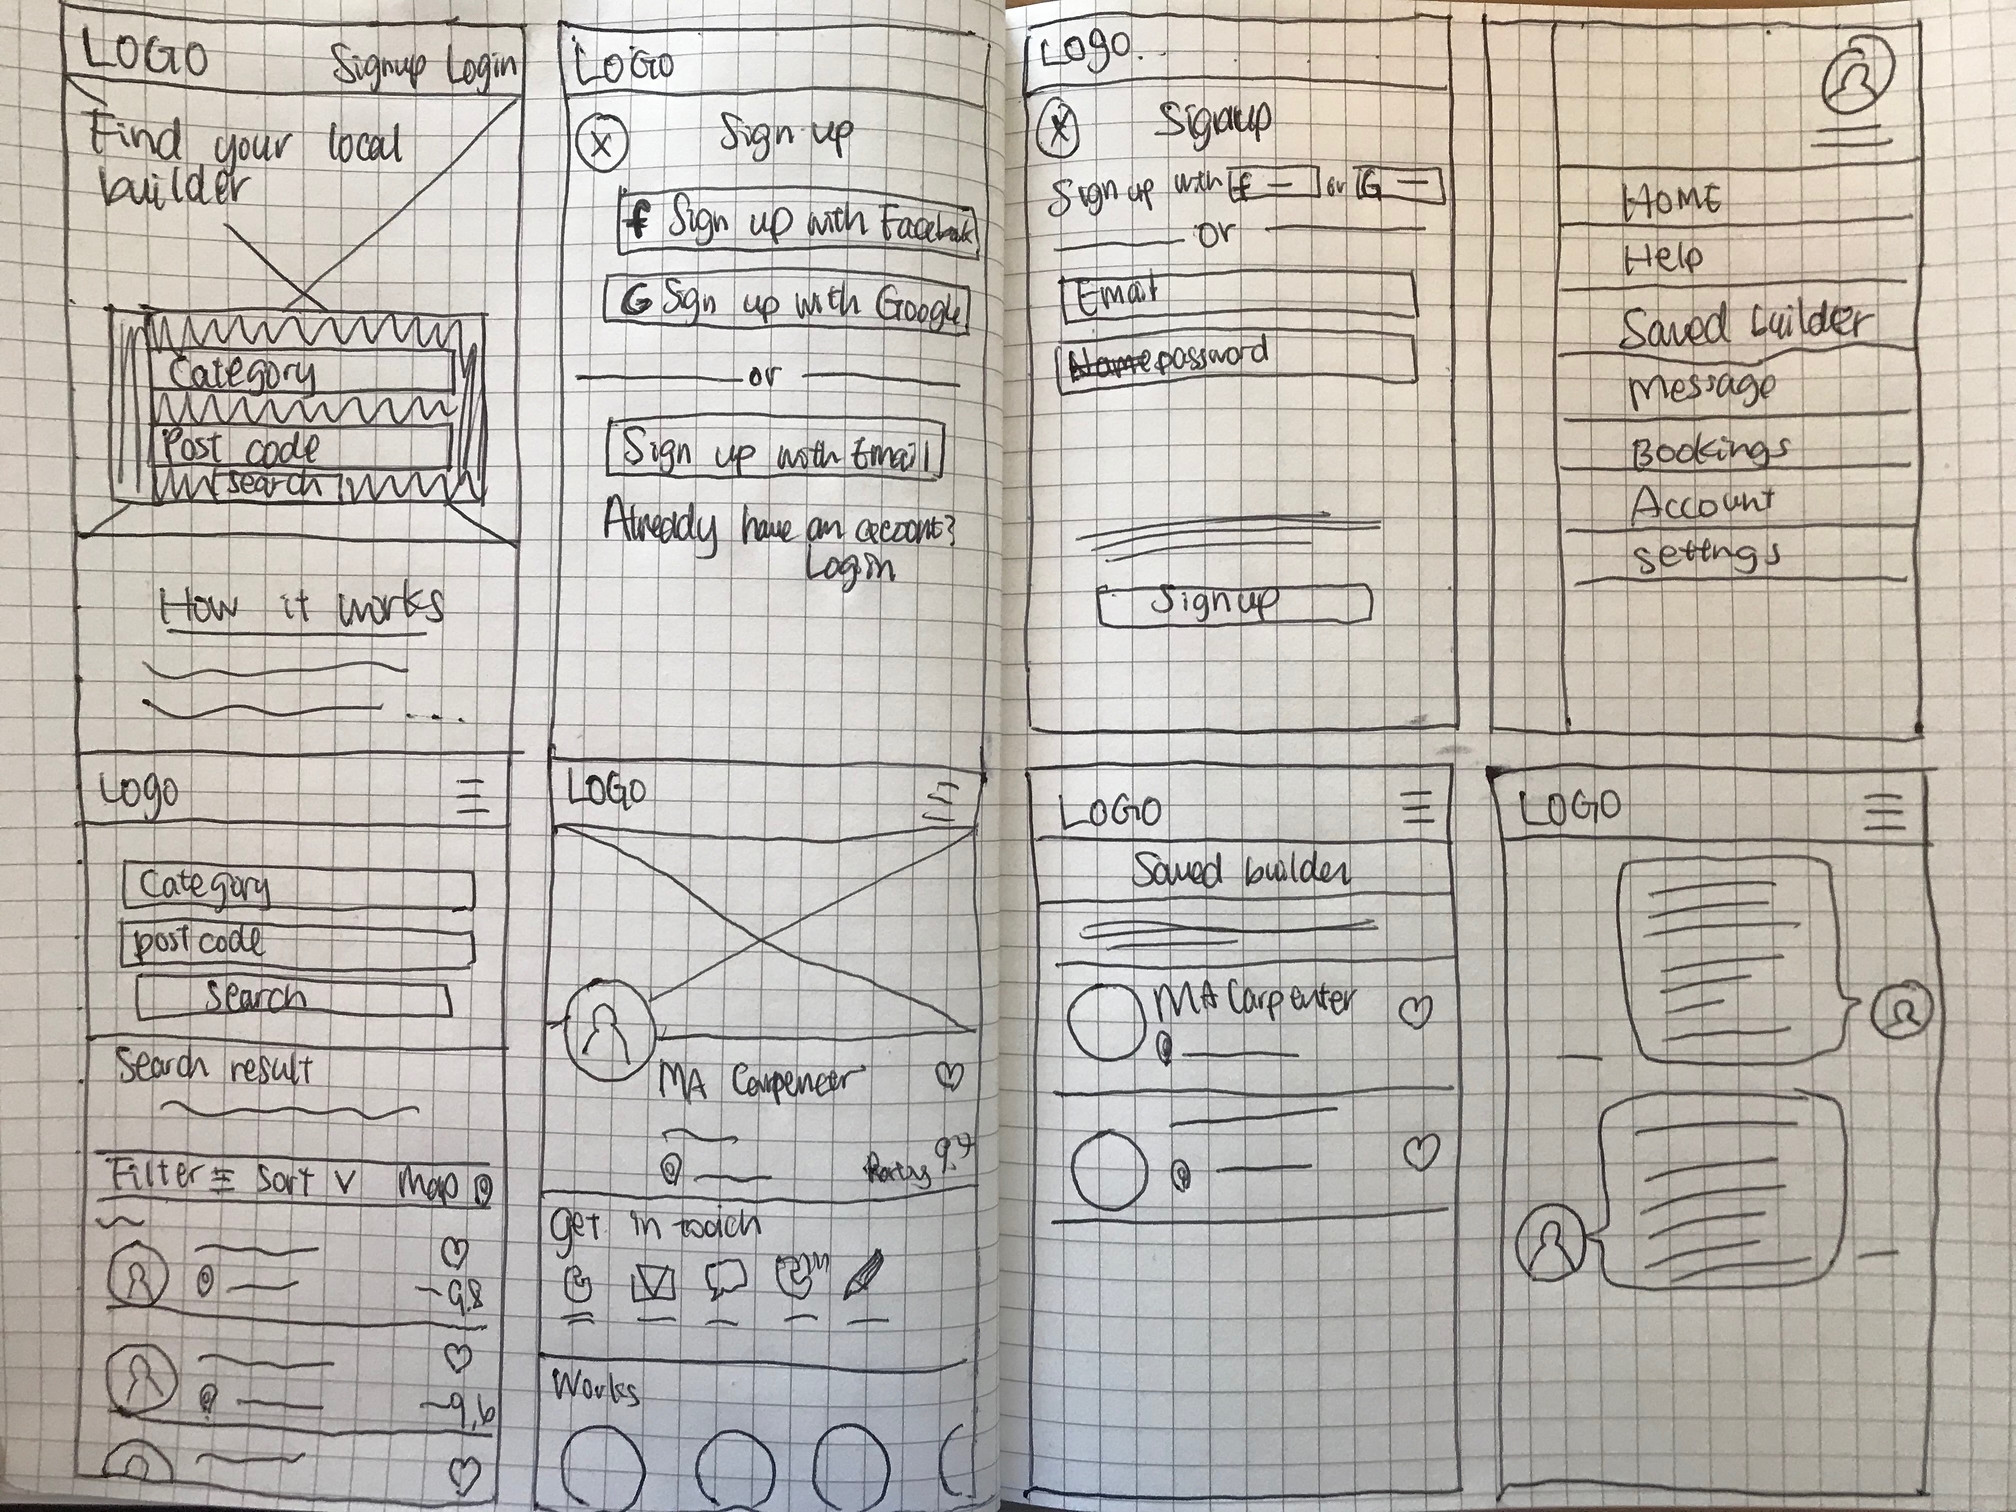 LOGO
Signup Login
Find your local
builder
Category
Post code
search
How it works
LOGO
X
Sign up
f Sign up with Facebook
G Sign up with Google
or
Sign up with Email
Already have an account?
Login
Logo
X
Signup
Sign up with f or G
or
Email
Name password
Signup
HOME
Help
Saved builder
Message
Bookings
Account
settings
Logo
Category
post code
Search
Search result
Filter sort Map
9.8
9.6
LOGO
MA Carpenter
9.7
Get in touch
Works
LOGO
Saved builder
MA Carpenter
LOGO